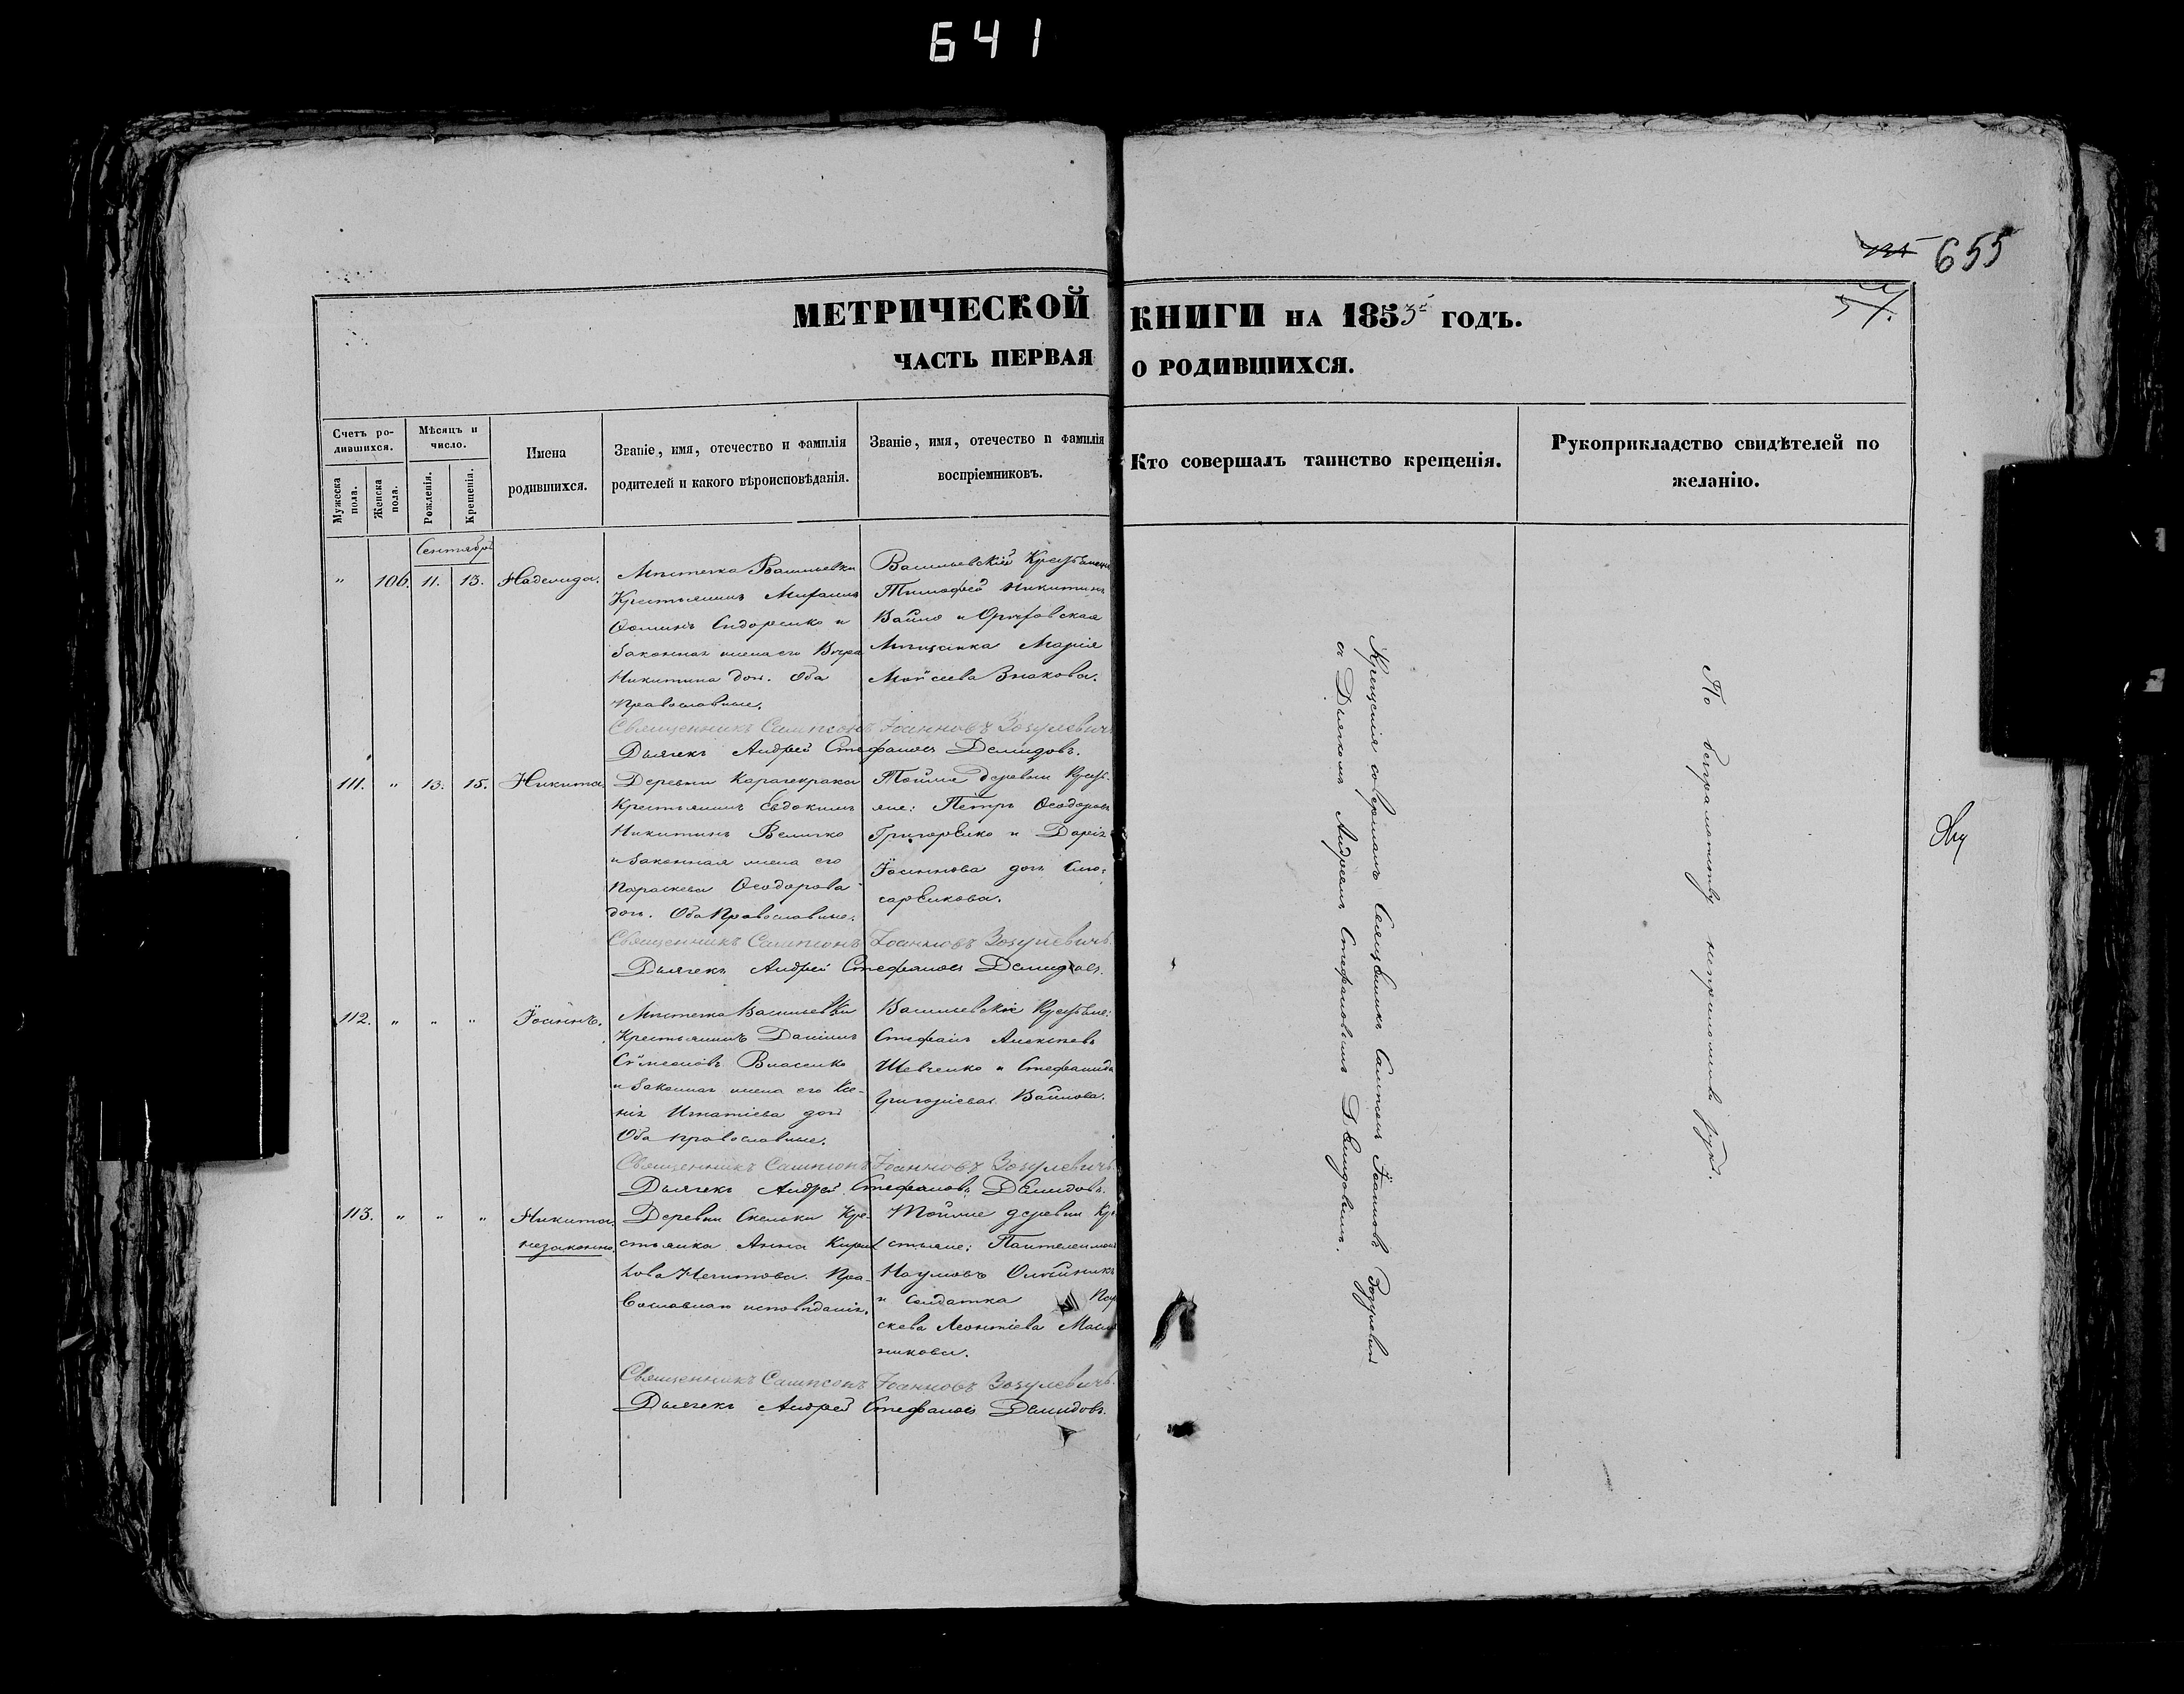 641
655
МЕТРИЧЕСКОЙ КНИГИ НА 1853 ГОДЪ.
ЧАСТЬ ПЕРВАЯ О РОДИВШИХСЯ.
Счетъ ро-
дившихся.
Мужеска
пола.
Женска
пола.
Мѣсяцъ и
число.
Рожденія.
Крещенія.
Имена
родившихся.
Званіе, имя, отечество и фамилія
родителей и какого вѣроисповѣданія.
Званіе, имя, отечество и фамилія
воспріемниковъ.
Кто совершалъ таинство крещенія.
Рукоприкладство свидѣтелей по
желанію.
Сентябрь
" 106. 11. 13. Надежда.
Мѣстечка Васильевки
Крестьянинъ Михаилъ
Ѳоминъ Сидоренко и
законная жена его Вѣра
Никитина доч. Оба
православные.
Васильевскій
Тимофей Никитинъ
Вайло и Орѣховская
Мѣщанка Марія
Моѵсеева Знакова.
Священникъ Сампсонъ Іоанновъ Зозулевичъ
Дьячекъ Андрей Стефановъ Демидовъ.
111. " 13. 15. Никита
Деревни Карачекрака
Крестьянинъ Евдокимъ
Никитинъ Величко
и законная жена его
Параскева Ѳеодорова
доч. Оба Православные.
Тойже деревни Кресть-
яне: Петръ Ѳеодоровъ
Григоренко и Дарія
Іоаннова доч. Слю-
саренкова.
Священникъ Сампсонъ Іоанновъ Зозулевичъ.
Дьячекъ Андрей Стефановъ Демидовъ.
112. " " " Іоаннъ.
Мѣстечка Васильевки
Крестьянинъ Даніилъ
Сѵмеоновъ Власенко
и законная жена его Ксе-
нія Игнатіева доч
Оба православные.
Васильевскіе
Стефанъ Алексѣевъ
Шевченко и Стефанида
Григоріева Вайлова.
Священникъ Сампсонъ Іоанновъ Зозулевичъ.
Дьячекъ Андрей Стефановъ Демидовъ.
113. " " " Никита
незаконно.
Деревни Скельки Кре-
стьянка Анна Кирил
лова Пра-
вославнаго исповѣданія.
Тойже деревни Кре
стьяне: Пантелеимонъ
Наумовъ Олѣйникъ
и солдатка Пар
скева Леонтіева
никова.
Священникъ Сампсонъ Іоанновъ Зозулевичъ.
Дьячекъ Андрей Стефановъ Демидовъ.
Крещенія совершалъ Священникъ Сампсонъ Іоанновъ Зозулевичъ
съ Дьячкомъ Андреемъ Стефановымъ Демидовымъ.
По безграмотству неприложили рукъ.